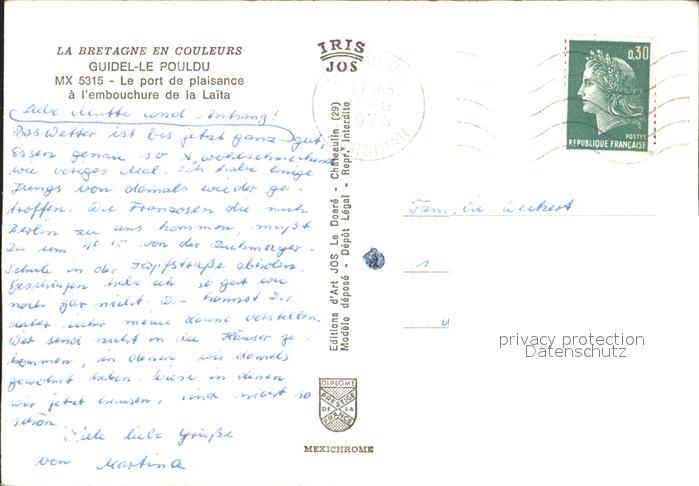 LA BRETAGNE EN COULEURS
GUIDEL-LE POULDU
MX 5315 - Le port de plaisance
à l'embouchure de la Laïta
Liebe Mutti und Anhang!
Das Wetter ist bis jetzt ganz gut,
Essen genau so wohlschmeckend
wie voriges Mal. Ich habe einige
Jungs von damals wieder ge-
troffen. Die Franzosen die nach
Berlin zu uns kommen, mußt
Du um 15 von der Zuckmayer-
Schule in der Kopfstraße abholen.
Geschlafen habe ich so gut wie
noch gar nicht. Du kannst Dir
daher meine Laune vorstellen.
Wir sind nicht in die Häuser ge-
kommen, in denen wir damals
gewohnt haben. Diese in denen
wir jetzt hausen, sind nicht so
schön.
Viele liebe Grüße
von Martina
IRIS
JOS
Editions d'Art JOS Le Doaré - Châteaulin (29)
Modèle déposé - Dépôt Légal - Repr. Interdite
DIPLOME
PRESTIGE
DE LA
FRANCE
MEXICHROME
1974
MORBIHAN
0,30
POSTES
REPUBLIQUE FRANÇAISE
Familie
1
privacy protection
Datenschutz